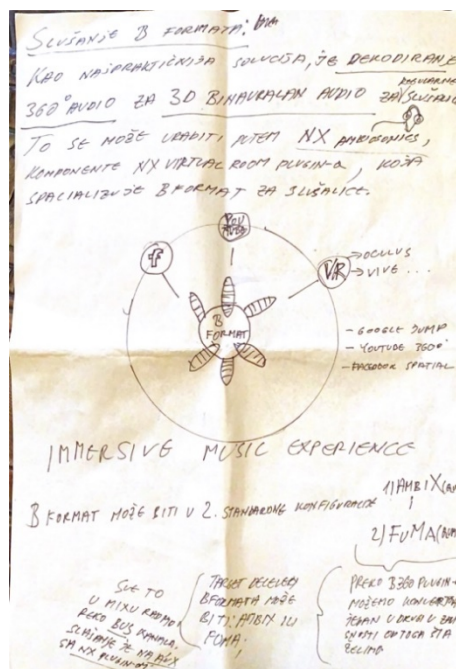 SLUŠANJE B FORMATA:
KAO NAJPRAKTIČNIJA SOLUCIJA, JE DEKODIRANJE
360° AUDIO ZA 3D BINAURALAN AUDIO ZA SLUŠALICE
TO SE MOŽE URADITI PUTEM NX AMBISONICS,
KOMPONENTE NX VIRTUAL ROOM PLUGIN-a, KOJA
SPACIALIZUJE B FORMAT ZA SLUŠALICE.
YOU TUBE
f
VR
→ OCULUS
→ VIVE ...
B
FORMAT
- GOOGLE JUMP
- YOUTUBE 360°
- FACEBOOK SPATIAL
IMMERSIVE MUSIC EXPERIENCE
B FORMAT MOŽE BITI U 2. STANDARDNE KONFIGURACIJE
1) AMBIX
2) FUMA
SVE TO
U MIXU RADIMO
PREKO BUS KANALA,
SLUŠANJE JE NA AUX
SA NX PLUGINOM
TARGET
B FORMATA MOŽE
BITI: AMBIX ILI
FUMA.
PREKO B360 PLUGIN-
MOŽEMO
JEDAN U DRUGI U
OD TOGA ŠTA
ŽELIMO